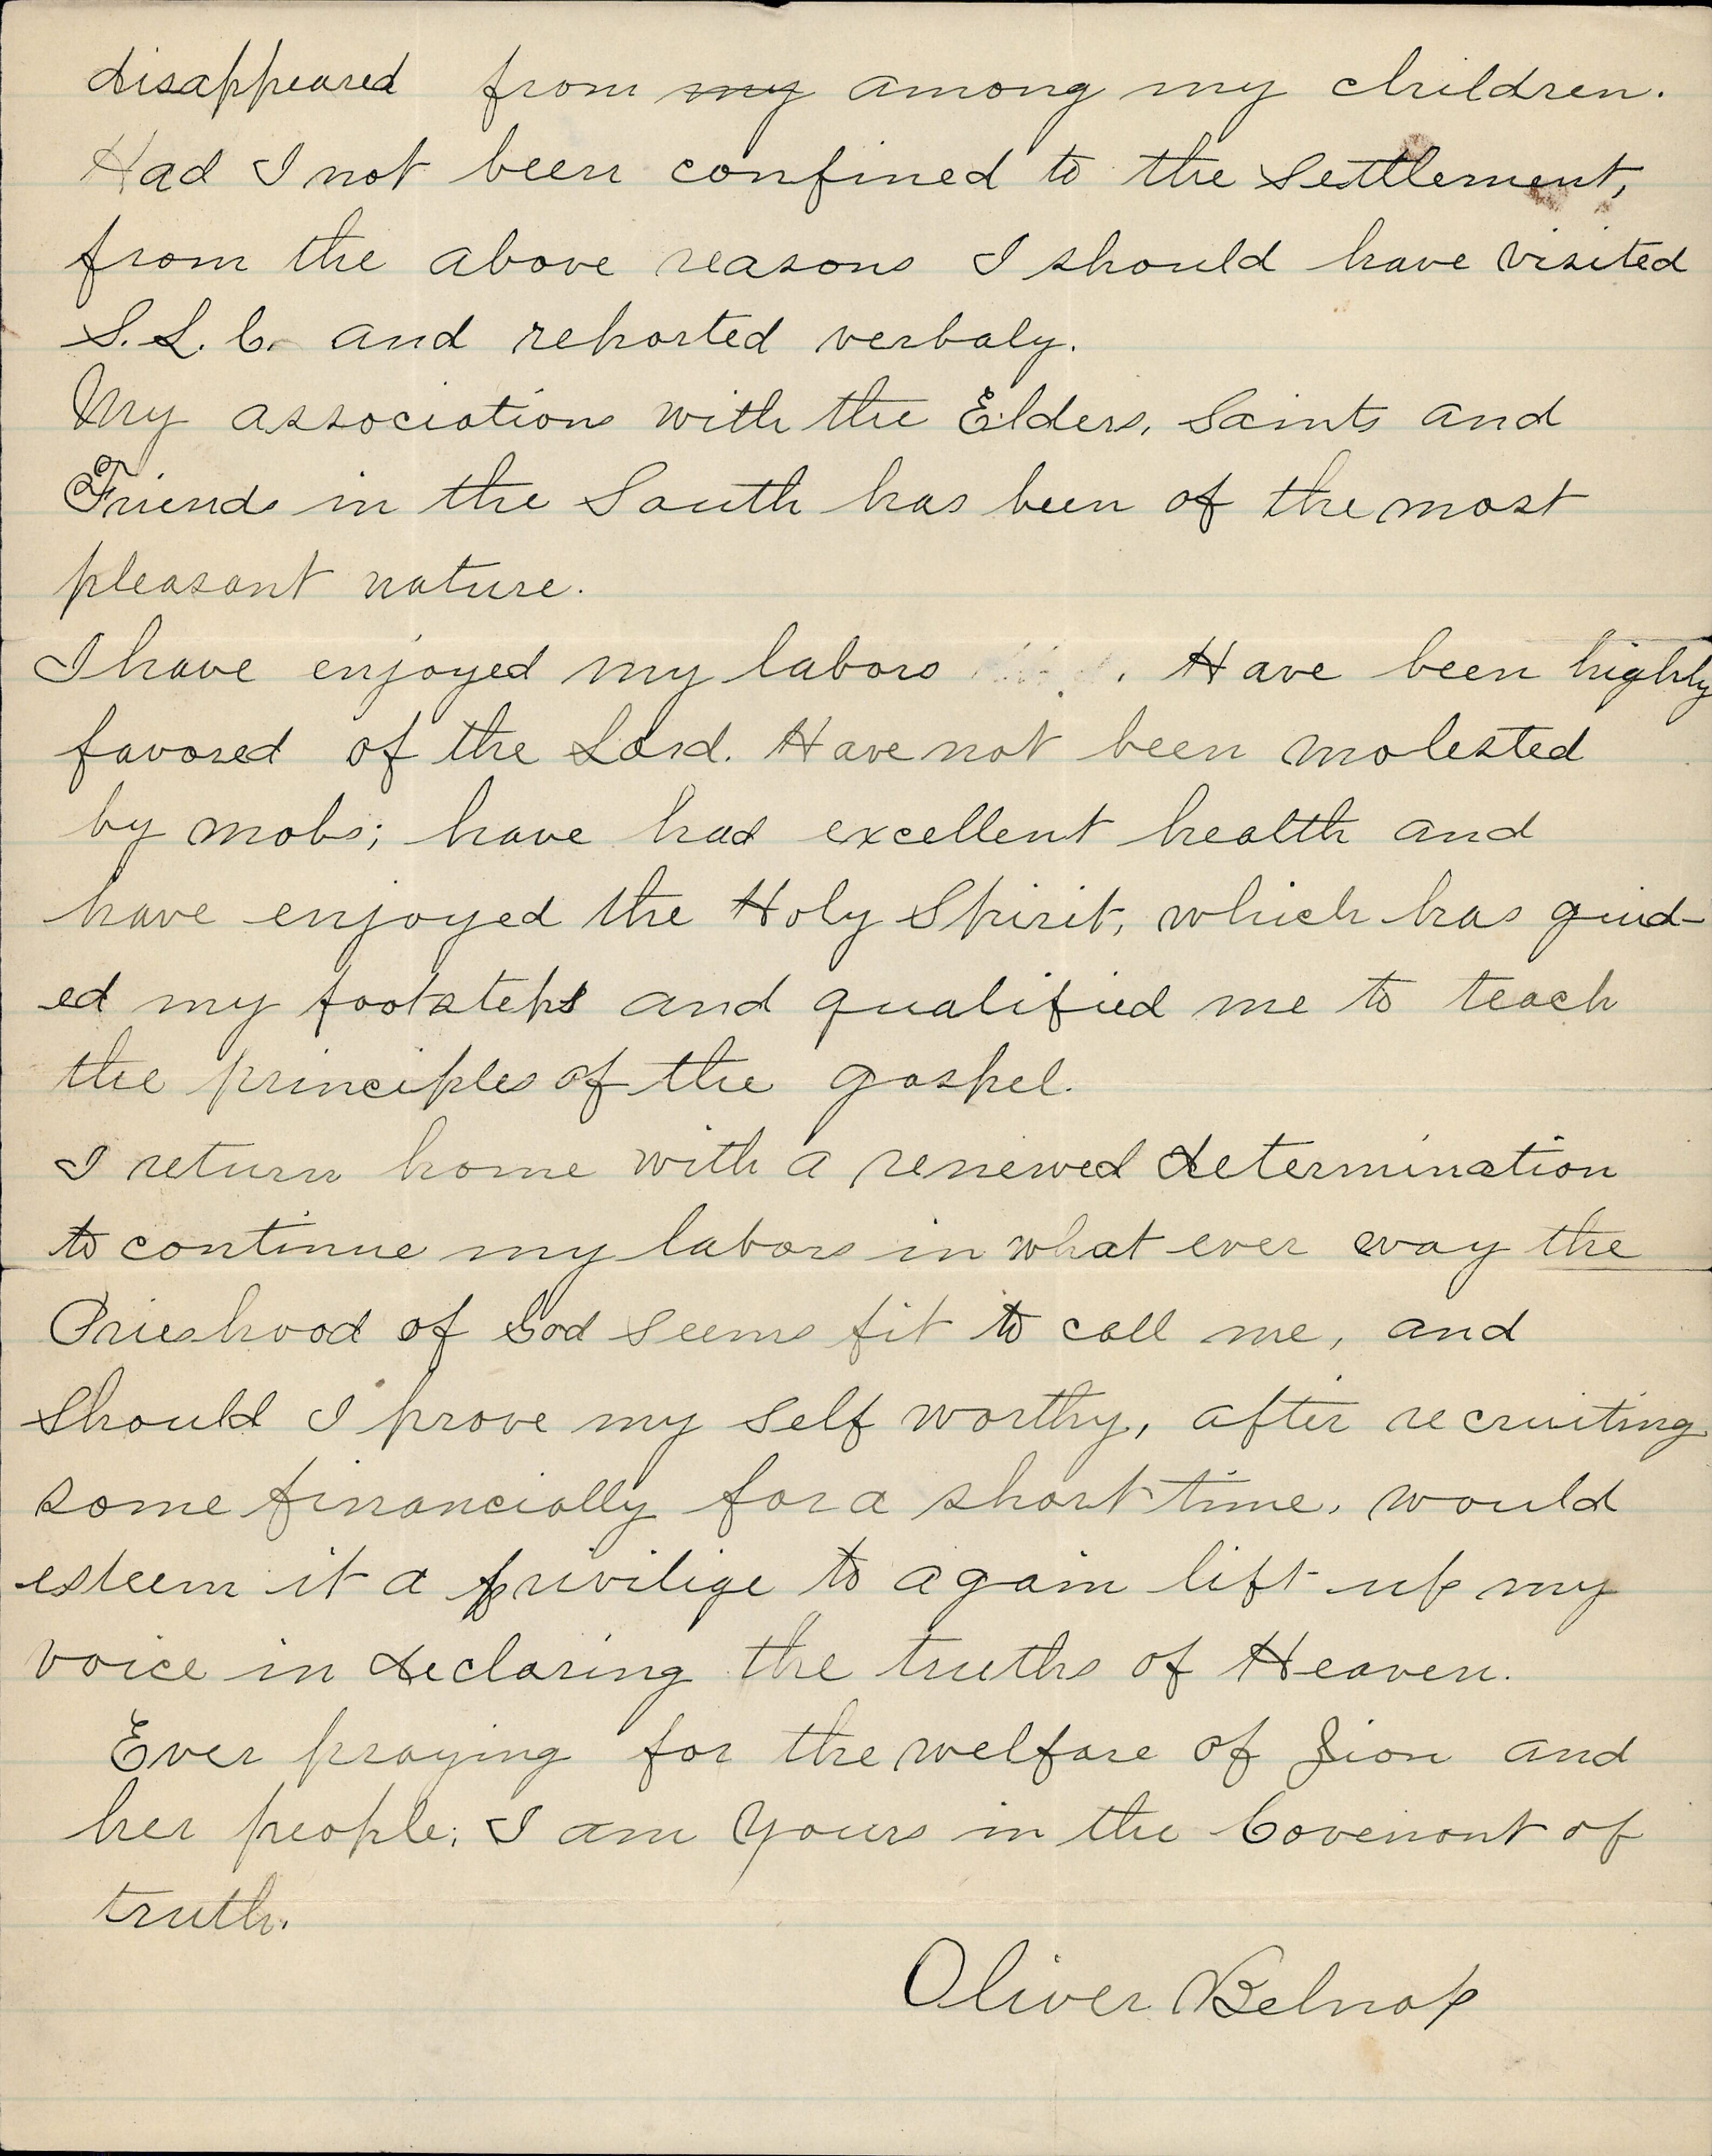 disappeared from my among my children.
Had I not been confined to the settlement,
from the above reasons I should have visited
S. L. C. and reported verbaly.
My associations with the Elders, Saints and
Friends in the South has been of the most
pleasant nature.
I have enjoyed my labors . Have been highly
favored of the Lord. Have not been molested
by mobs; have had excellent health and
have enjoyed the Holy Spirit, which has guid-
ed my footsteps and qualified me to teach
the principles of the gospel.
I return home with a renewed determination
to continue my labors in what ever way the
Prieshood of God seems fit to call me, and
should I prove my self worthy, after recruiting
some financially for a short time, would
esteem it a privilige to again lift up my
voice in declaring the truths of Heaven.
Ever praying for the welfare of Zion and
her people; I am yours in the Covenant of
truth.
Oliver Belnap